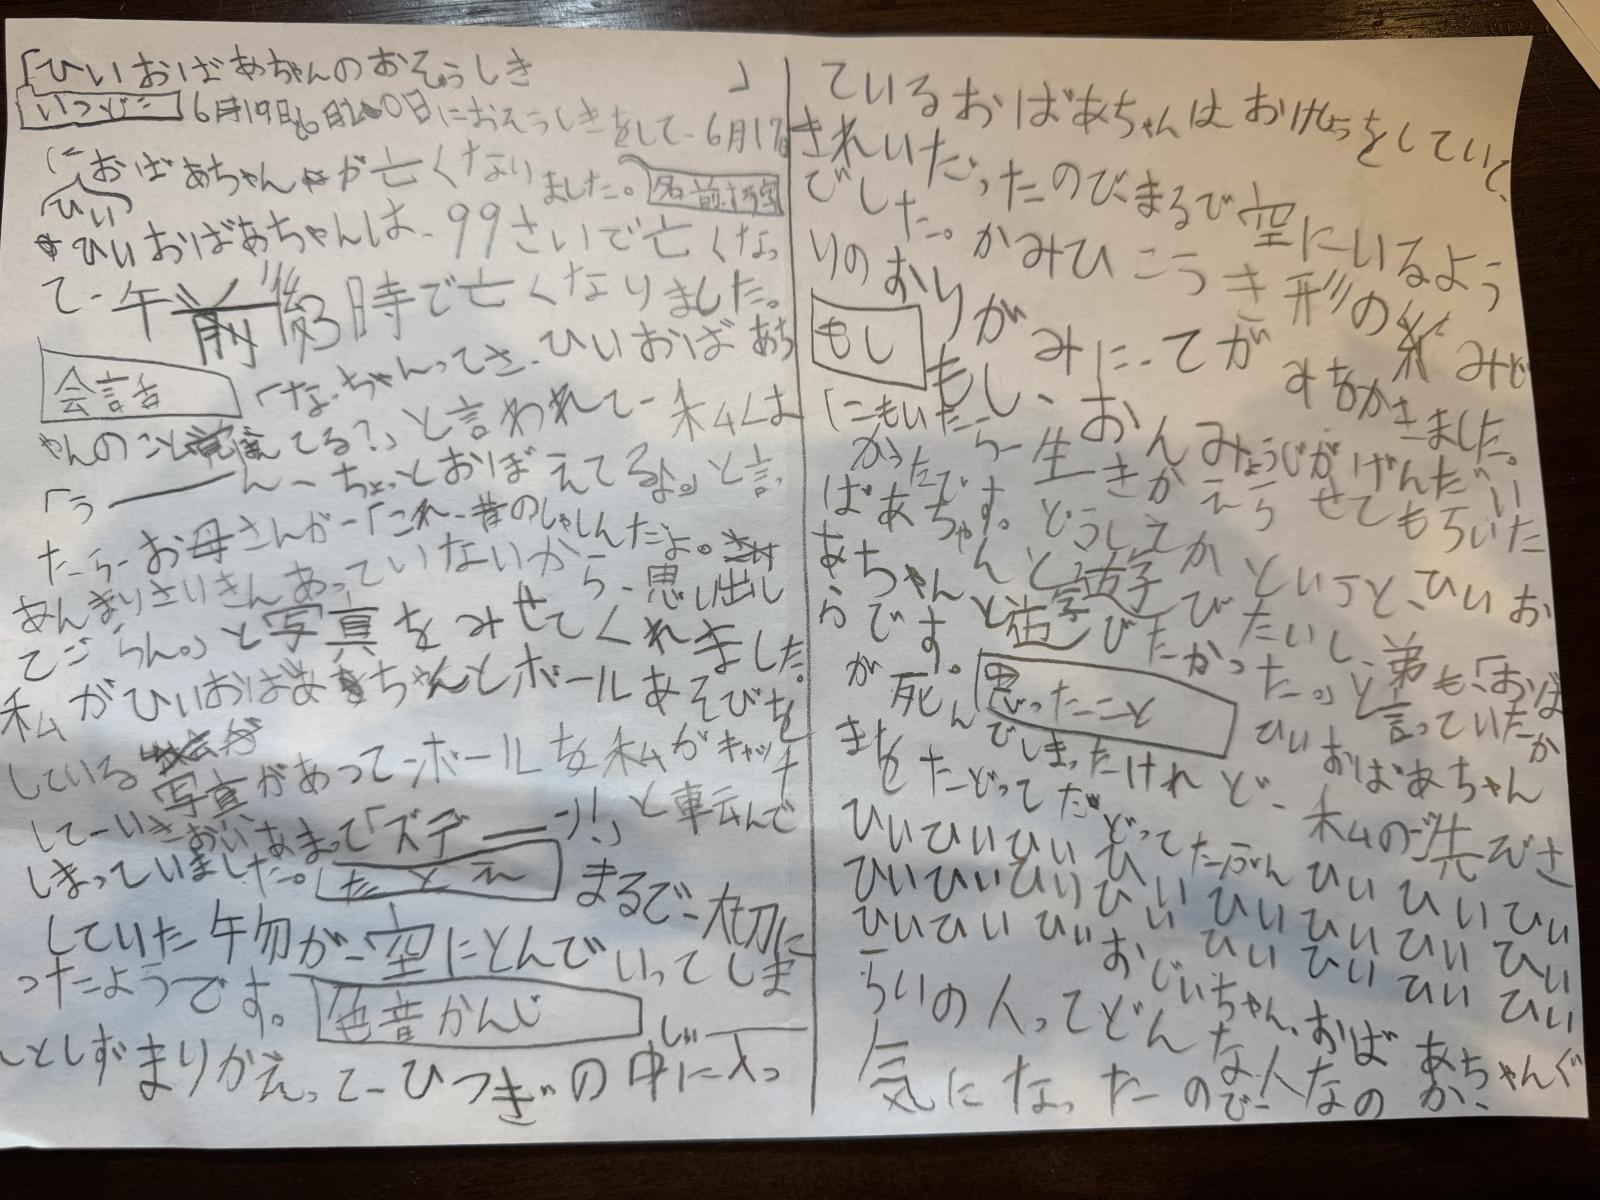 「ひいおばあちゃんのおそうしき」
いつどこ 6月19日6月20日におそうしきをして、6月17日
に おばあちゃんが亡くなりました。 名前
ひい
ひいおばあちゃんは、99さいで亡くなっ
て、午後3時で亡くなりました。
会話
「なっちゃんってさ、ひいおばあち
ゃんのこと覚えてる?」と言われて、私は
「うーん、ちょっとおぼえてるよ。」と言っ
たら、お母さんが、「これ、昔のしゃしんだよ。
あんまりさいきんあっていないから、思い出し
てごらん。」と写真をみせてくれました。
私がひいおばあちゃんとボールあそびを
している
写真があって、ボールを私がキャッチ
して、いきおいあまって「ズデーン!」と転んで
しまっていました。 たとえ まるで、大切に
していた物が、空にとんでいってしま
ったようです。 色音かんじ じー
んとしずまりかえって、ひつぎの中に入っ
ているおばあちゃんはおけしょうをしていて、
きれいだったので、まるで空にいるよう
でした。かみひこうき形の みど
りのおりがみに、てがみをかきました。
もし もし、おんみょうじがげんだい
にもいたら、生きかえらせてもらいた
かったです。どうしてかというと、ひいお
ばあちゃんと遊びたいし、弟も、「おば
あちゃんと遊びたかった。」と言っていたか
らです。 思ったこと ひいおばあちゃん
が死んでしまったけれど、私のご先ぞさ
まをたどってたどってたぶん ひいひいひい
ひいひいひいひいひいひいひいひい
ひいひいひいひいひいひいひいひい
ひいひいひいおじいちゃん、おばあちゃんぐ
らいの人ってどんな人なのか、
気になったので、